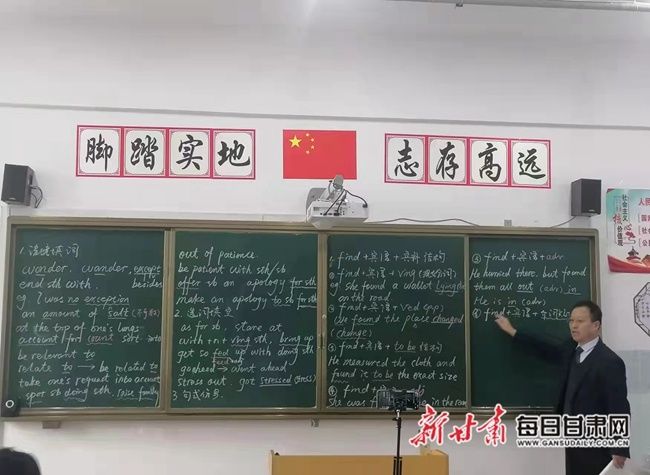 脚踏实地
志存高远
社会主义
核心
价值观
人民
1.
wonder, wander, except
end sth with, besides
eg. I was no exception
an amount of salt
at the top of one's lungs
account for count sort into
be relevant to
relate to → be related to
take one's request into account
spot sb doing sth, raise family
out of patience
be patient with sth/sb
offer sb an apology for sth
make an apology to sb for sth
2.
as for sb, stare at
with+n+ving sth, bring up
get so fed up with doing sth
go ahead → ahead
stress out got stressed (stress)
3.
① find+宾语+宾补结构
② find+宾语+Ving
eg she found a wallet lying
on the road
③ find+宾语+Ved
We found the place changed
(change)
④ find+宾语+to be 结构
He measured the cloth and
found it to be the exact size
⑤ find+
She was in the room
find+宾语+adv
He hurried there, but found
them all out (adv) in
He is in (adv)
find+宾语+
新甘肃
每日甘肃网
WWW.GANSUDAILY.COM.CN